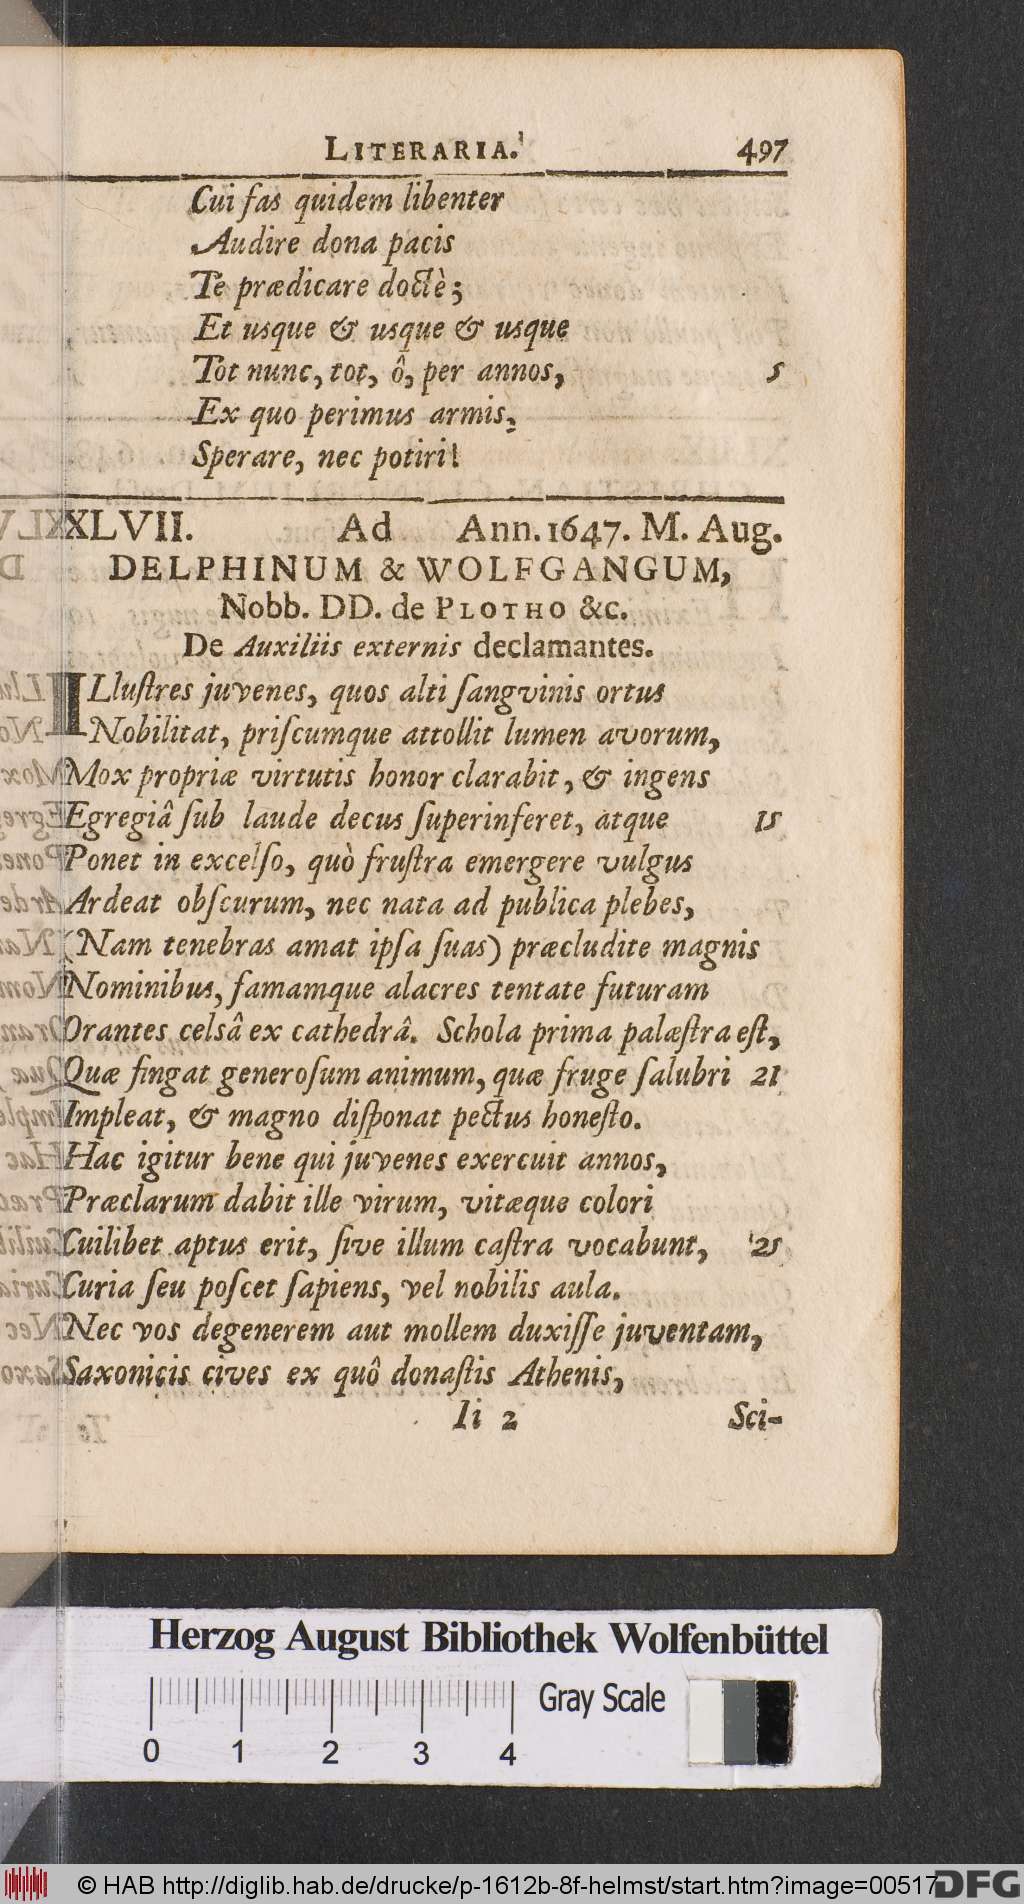 LITERARIA. 497
Cui fas quidem libenter
Audire dona pacis
Te prædicare doctè;
Et usque & usque & usque
Tot nunc, tot, ô, per annos, 5
Ex quo perimus armis,
Sperare, nec potiri!
XLVII. Ad Ann. 1647. M. Aug.
DELPHINUM & WOLFGANGUM,
Nobb. DD. de PLOTHO &c.
De Auxiliis externis declamantes.
ILluſtres juvenes, quos alti ſangvinis ortus
Nobilitat, priſcumque attollit lumen avorum,
Mox propriæ virtutis honor clarabit, & ingens
Egregiâ ſub laude decus ſuperinferet, atque 15
Ponet in excelſo, quò fruſtra emergere vulgus
Ardeat obſcurum, nec nata ad publica plebes,
(Nam tenebras amat ipſa ſuas) præcludite magnis
Nominibus, famamque alacres tentate futuram
Orantes celsâ ex cathedrâ. Schola prima palæſtra eſt,
Quæ fingat generoſum animum, quæ fruge ſalubri 21
Impleat, & magno diſponat pectus honeſto.
Hac igitur bene qui juvenes exercuit annos,
Præclarum dabit ille virum, vitæque colori
Cuilibet aptus erit, ſive illum caſtra vocabunt, 25
Curia ſeu poſcet ſapiens, vel nobilis aula.
Nec vos degenerem aut mollem duxiſſe juventam,
Saxonicis cives ex quô donaſtis Athenis,
Ii 2 Sci-
Herzog August Bibliothek Wolfenbüttel
Gray Scale
0 1 2 3 4
© HAB http://diglib.hab.de/drucke/p-1612b-8f-helmst/start.htm?image=00517
DFG